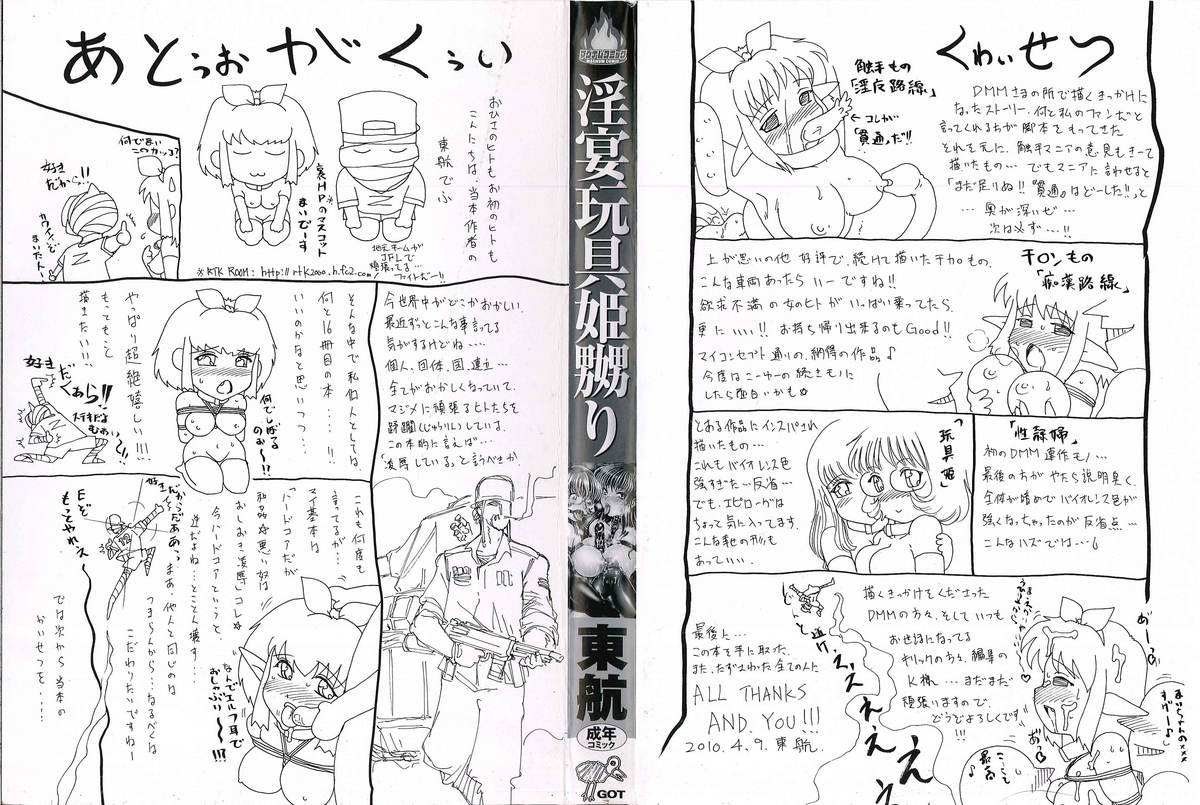 あとぅおがくぅい
おひさのヒトも お初のヒトも
こんにちは、当本作者の
東航でふ
裏HPのマスコット
まいでーす
地元チームが
JFLで
頑張ってる…
ファイトだー!!
※RTK ROOM: http://rtk2000.h.fc2.com/
何で長いこのカッコ?
好きだから!!
今世界中がどこかおかしい。
最近ずっとこんな事言ってる
気がするけどね…
個人、団体、国、連立…
全てがおかしくなっていて、
マジメに頑張るヒトたちを
蹂躙(じゅうりん)している。
この本的に言えば…
「凌辱している」と言うべきか
そんな中で私個人としては
何と16冊目の本…!!
いいのかなと思いつつ…
やっぱり超絶嬉しい!!!
もっともっと
描きたい!!
何でしばるのぉ~!?
好きだくぁら!!
ステキだよ
これも何度も
言ってるが…
マイ基本は
「ハードコア」だが
和姦☆悪い奴は
おしおき凌辱」コレ☆
今ハードコアというと、
逆だよね…とことん壊す…
まあ、他人と同じのは
つまらんから…なるべくは
こだわりたいですねー
では次から当本の
かいせつを….
好きだからだぁぁっ
もってやれぇ
なんでエルフ耳で
おしゃぶり~!!?
マグナムコミック
MAGNUM COMIC
淫宴玩具姫嬲り
東航
成年
コミック
GOT
くわいせつ
触手もの
「淫辱路線」
←コレが
「貫通」だ!!
DMMさまの所で描くきっかけに
なったストーリー。何と私のファンだと
言ってくれる方が脚本をもってきた
それを元に、触手マニアの意見もきいて
描いたもの… でもマニアに言わせると
「まだ足りぬ!! 貫通のはどーした!!」って
…奥が深いぜ…
次は必ず…!!
チカンもの
「痴漢路線」
上が思いの他 好評で、続けて描いたチカンもの。
こんな車両あったら いーですね!!
欲求不満の女のヒトが いっぱい乗ってたら
更にいい!! お持ち帰り出来るのもGood!!
マイコンセプト通りの、納得の作品♪
今度はこーゆーの続きものに
したら面白いかも☆
「玩具姫」
とある作品にインスパされ
描いたもの…
これもバイオレンス色
強すぎた…反省…
でも、エピローグは
ちょっと気に入ってます。
こんな愛の形も
あっていい。
「性隷婦」
初のDMM連作もん…
最後の方が やたら説明臭く、
全体が暗めでバイオレンス色が
強くなっちゃったのが 反省点…
こんなハズでは…
描くきっかけをくださった
DMMの方々、そして いつも
お世話になってる
キルックの方々、編集の
K様、…まだまだ
頑張りますので、
どうぞよろしくです!!!
最後に…
この本を手に取った、
また、たずさわった全ての人に
ALL THANKS
AND YOU!!!
2010.4.9. 東航.